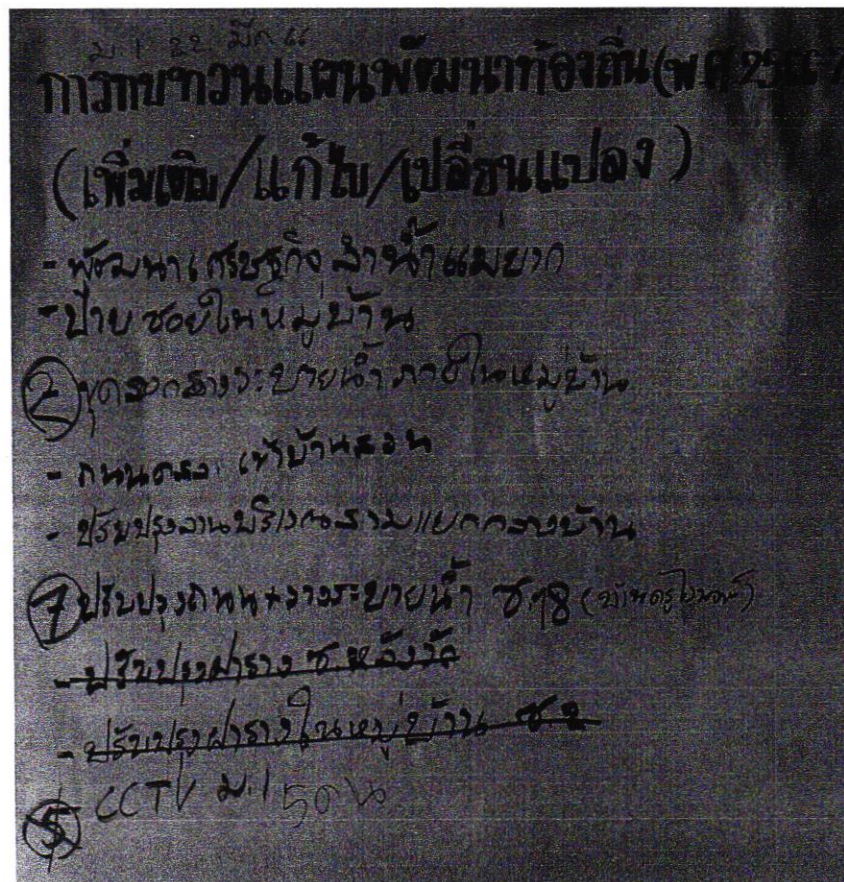 ม.1 22 มีค 66
การทบทวนแผนพัฒนาท้องถิ่น(พศ 25
(เพิ่มเติม/แก้ไข/เปลี่ยนแปลง)
- พัฒนาเศรษฐกิจ ลำน้ำแม่ยาก
- ป้าย ซอยในหมู่บ้าน
2 ขุดลอกรางระบายน้ำ ภายในหมู่บ้าน
- ถนน เข้าบ้าน
- ปรับปรุงลานบริเวณสามแยกกลางบ้าน
ปรับปรุงถนน+รางระบายน้ำ ซ.
- ปรับปรุงฝาราง ซ หลังวัด
- ปรับปรุงฝารางในหมู่บ้าน ซ 2
5 CCTV ม.1